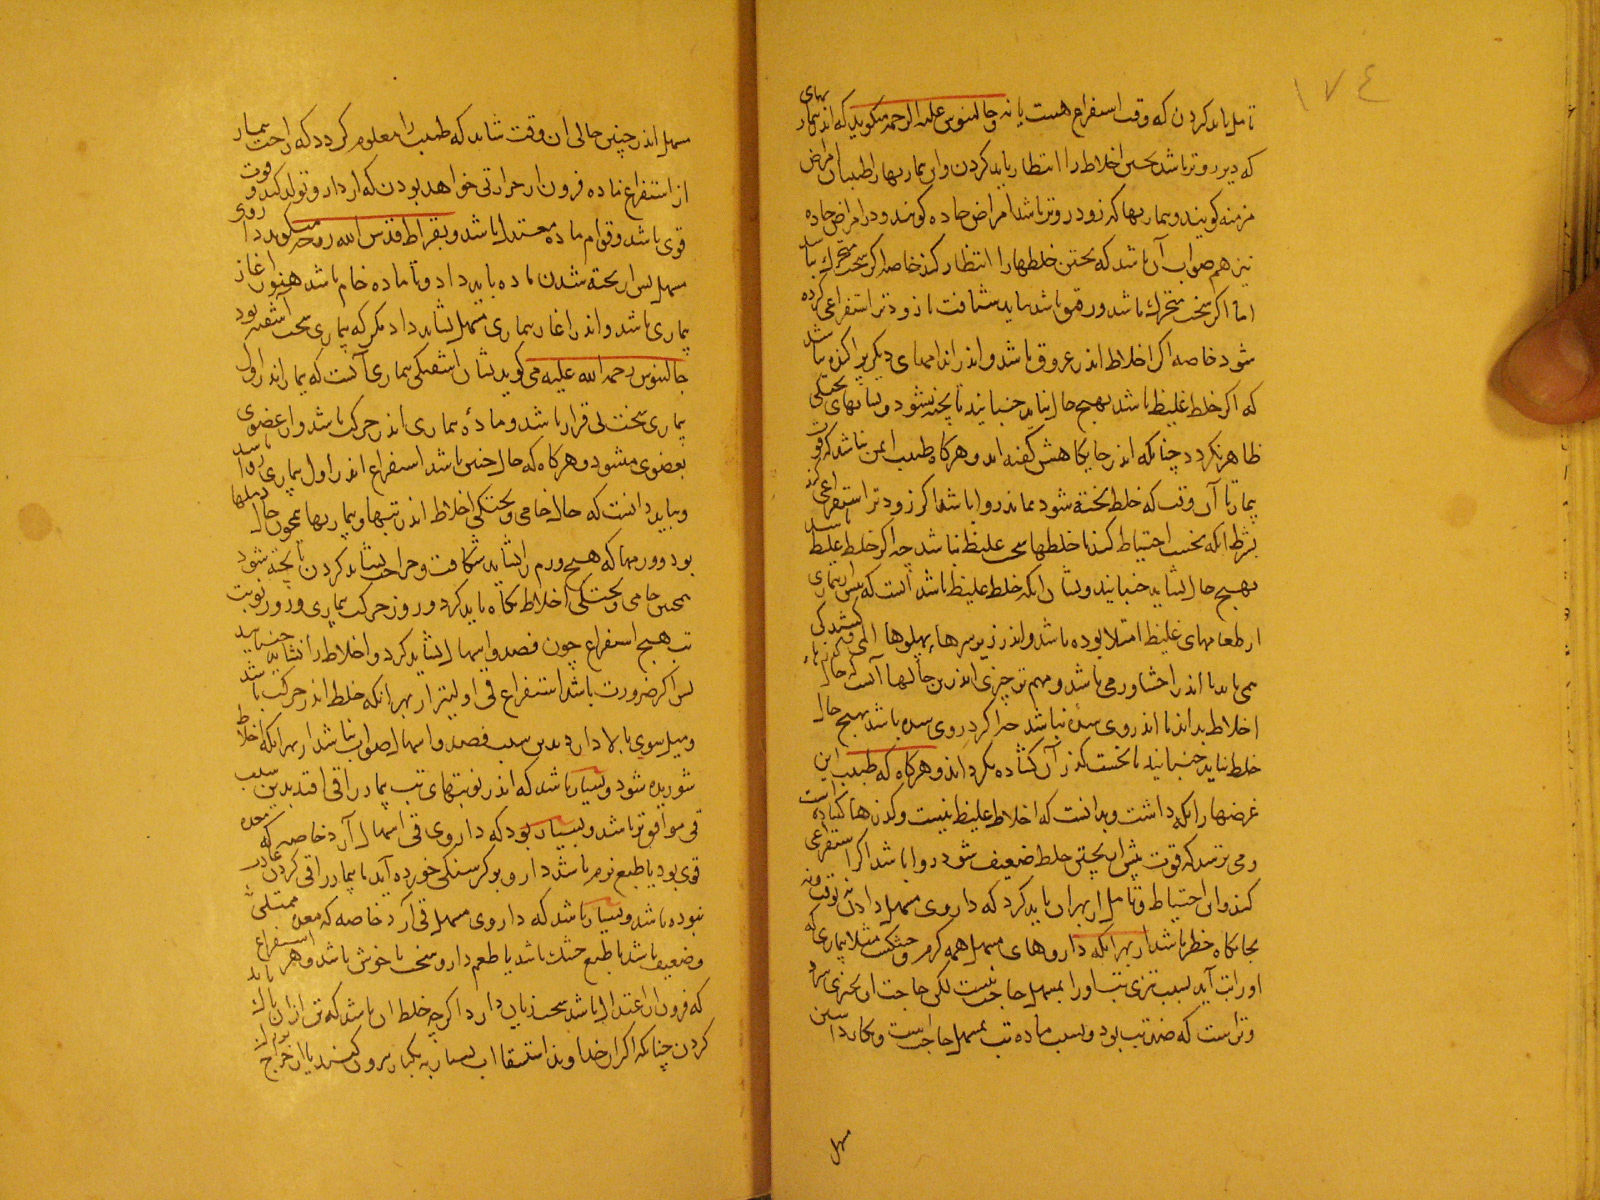 ١٧٤
تامل باید کردن که وقت استفراغ هست یا نه و جالینوس علیه الرحمه میکوید که اندر بیماریهای
که دیرروتر باشد بختن اخلاط را انتظار باید کردن و ان بیماریها را طبیبان امراض
مزمنه کویند و بیماریها که زودروتر باشد امراض حاده کویند و در امراض حاده
نیز هم صواب آن باشد که بختن خلطها را انتظار کنند خاصه اکر سخت متحرک نباشد
اما اکر سخت متحرک باشد و رقیق باشد باید شتافت تا زودتر استفراغی کرده
شود خاصه اکر اخلاط اندر عروق باشد و اندر اندامهای دیکر پراکنده نباشد
که اکر خلط غلیظ باشد بهیچ حال نباید جنبانید تا پخته نشود و نشانهای پختکی
ظاهر نکردد چنانکه اندر جایکاهش کفته اند و هرکاه طبیب ایمن نباشد که قوت
بیمار تا آن وقت که خلط پخته شود بماند روا باشد اکر زودتر استفراغی کند
بشرط انکه نخست احتیاط کند تا خلطها سخت غلیظ نباشد چه اکر خلط غلیظ باشد
بهیچ حال نشاید جنبانید و نشان انکه خلط غلیظ باشد آنست که پیش از بیماری
از طعامهای غلیظ امتلا بوده باشد و اندر زیر سرهای پهلوها المی و کشیدکی
می یابد یا اندر احشا ورمی باشد و مهم تر چیزی اندرین حالها آنست که حال کذرهای
اخلاط بداند تا اندر وی سده نباشد چرا که در وی سده باشد بهیچ حال
خلط نباید جنبانید تا نخست کذر آن کشاده نکرداند و هرکاه که طبیب این
غرضها را نکه داشت و بدانست که اخلاط غلیظ نیست و کذرها کشاده است
و می ترسد که قوت پیش از پختن خلط ضعیف شود روا باشد اکر استفراغی
کند و این احتیاط و تامل از بهر ان باید کرد که داروی مسهل دادن نه بوقت و نه
بجایکاه خطر باشد از بهر انکه داروهای مسهل همه کرم و خشکست مثلا بیماری که
او را تب آید بسبب تیزی تب او را بمسهل حاجت نیست لکن حاجت او بچیزی سرد
و تر است که ضد تب بود و بسبب ماده تب بمسهل حاجت است و بکار داشتن
مسهل
مسهل اندر چنین حالی ان وقت شاید که طبیب را معلوم کردد که راحت بیمار
از استفراغ ماده فزون از حرارتی خواهد بودن که از دارو تولد کند و قوت
قوی باشد و قوام ماده معتدل باشد و بقراط قدس الله روحه میکوید داروی
مسهل پس از پخته شدن ماده باید داد و تا ماده خام باشد هنوز اغاز
بیماری باشد و اندر اغاز بیماری مسهل نشاید داد مکر که بیماری سخت آشفته بود
جالینوس رحمة الله علیه می کوید نشان اشفتکی بیماری آنست که بیمار اندر اول
بیماری سخت بی قرار باشد و مادهٔ بیماری اندر حرکت باشد و از عضوی
بعضوی میشود و هرکاه که حال چنین باشد استفراغ اندر اول بیماری روا باشد
و بباید دانست که حال خامی و پختکی اخلاط اندر تبها و بیماریها همچون حال دملها
بود و ورمها که هیچ ورم را نشاید شکافت و جراحت نشاید کردن تا پخته شود
همچنین خامی و پختکی اخلاط نکاه باید کرد و روز حرکت بیماری و روز نوبت
تب هیچ استفراغ چون فصد و اسهال نشاید کرد و اخلاط را نشاید جنبانید
پس اکر ضرورت باشد استفراغ قی اولیتر از بهر انکه خلط اندر حرکت باشد
و میل سوی بالا دارد بدین سبب فصد و اسهال صواب نباشد از بهر انکه اخلاط
شوریده شود و بسیار باشد که اندر نوبتهای تب بیمار را قی افتد بدین سبب
قی موافق تر باشد و بسیار بود که داروی قی اسهال آرد خاصه که معده
قوی بود یا طبع نرم باشد دارو بر کرسنکی خورده آید یا بیمار را قی کردن عادت
نبوده باشد و بسیار باشد که داروی مسهل قی آرد خاصه که معده ممتلی
و ضعیف باشد یا طبع خشک باشد یا طعم دارو سخت ناخوش باشد و هر استفراغ
که فزون از اعتدال باشد سخت زیان دارد اکرچه خلط ان باشد که تن از ان پاک باید
کردن چنانکه اکر از خداوند استسقا آب بسیار به یکبار بیرون کنند یا از خراج